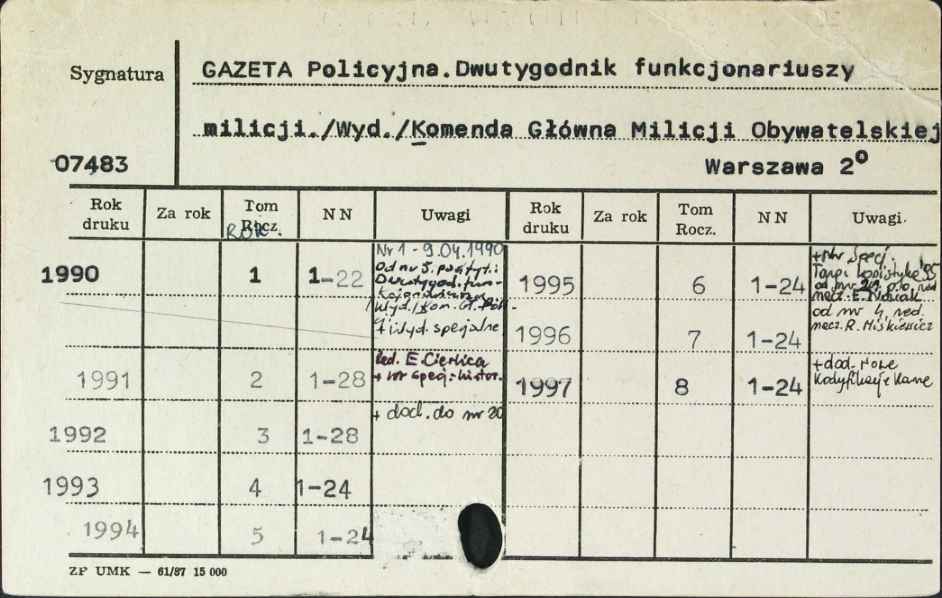 Sygnatura
GAZETA Policyjna.Dwutygodnik funkcjonariuszy
milicji./Wyd./Komenda Główna Milicji Obywatelskiej
07483
Warszawa 2°
Rok druku Za rok Tom Rocz. NN Uwagi Rok druku Za rok Tom Rocz. NN Uwagi.
ROK
1990 1 1-22 Nr 1 - 9.04.1990
Od nr 5. podtyt.:
Dwutygod. fun-
Wyd./Kom. Gł.
+ wyd. specjalne
1991 2 1-28 Red. E. Cierlica
+ nr spec.-histor.
1992 3 1-28 + dod. do nr 20
1993 4 1-24
1994 5 1-24
1995 6 1-24 + Nr Specj.
od nr
nacz. E. Nowak
1996 7 1-24 od nr 4, red.
nacz. R. Miśkiewicz
1997 8 1-24 + dod. Nowe
Kodyfikacje Karne
ZP UMK — 61/87 15 000